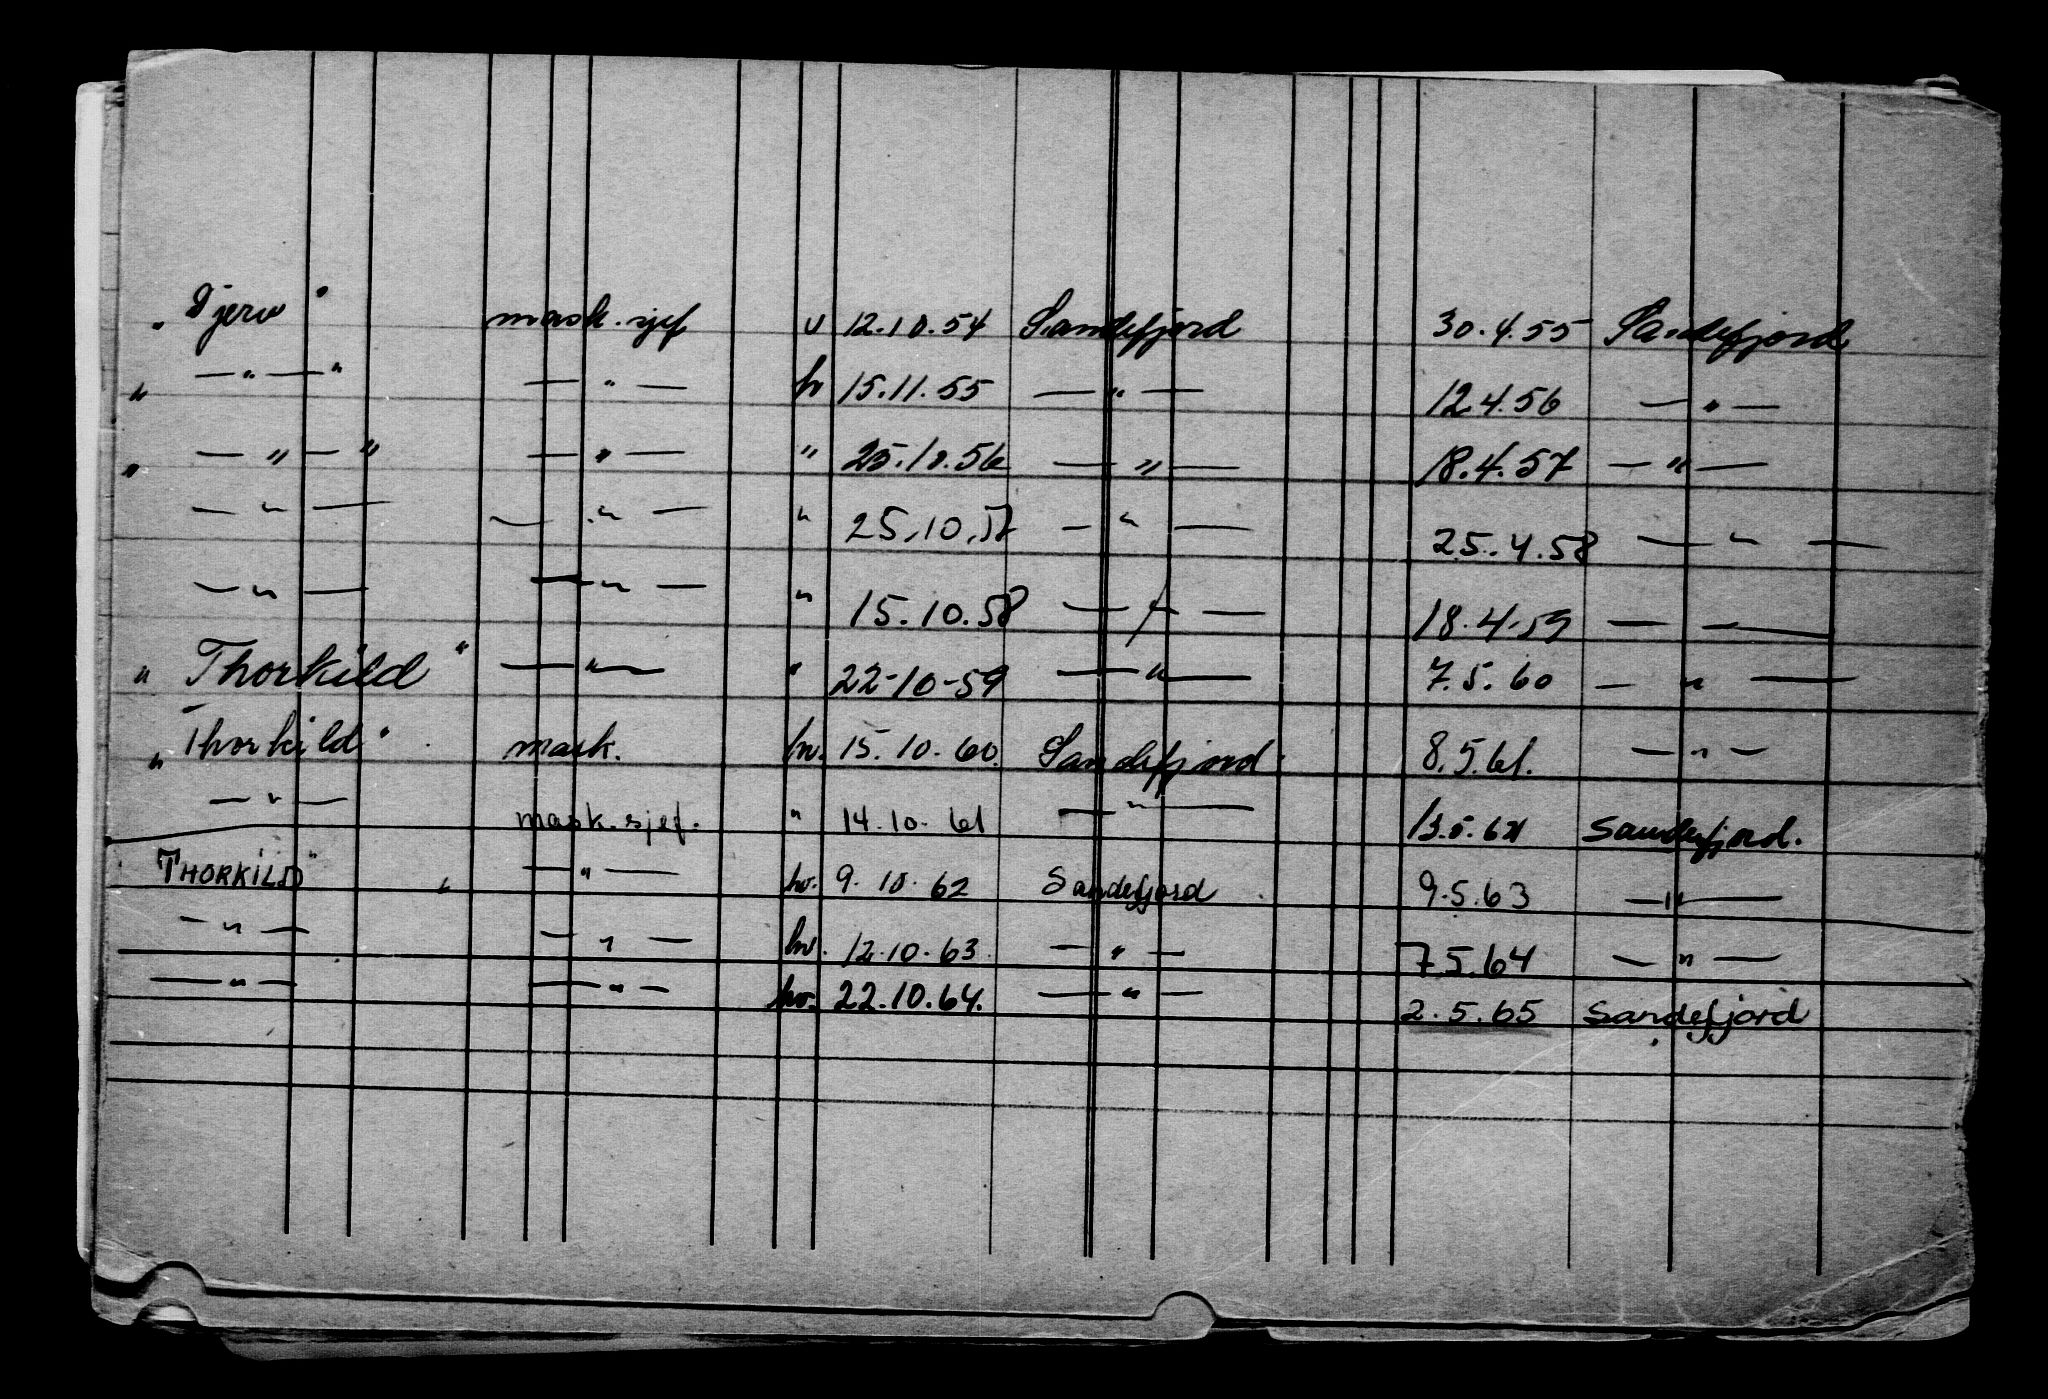 „ Djerv " mask. sjef u 12.10.54 Sandefjord 30.4.55 Sandefjord
„ — " — " — " — hv 15.11.55 — " — 12.4.56 — " —
„ — " — " — " — " 25.10.56 — " — 18.4.57 — " —
— " — — " — " 25.10.57 — " — 25.4.58 — " —
— " — — " — " 15.10.58 — " — 18.4-59 — " —
" Thorkild " — " — " 22-10-59 — " — 7.5.60 — " —
„ Thorkild " mask. hv. 15.10.60. Sandefjord 8.5.61. — " —
— " — mask. sjef. " 14.10.61 — " — Sandefjord.
THORKILD " — " — hv. 9.10.62 Sandefjord 9.5.63 — " —
— " — — " — hv. 12.10.63 — " — 7.5.64 — " —
— " — — " — hv. 22.10.64. — " — 2.5.65 Sandefjord